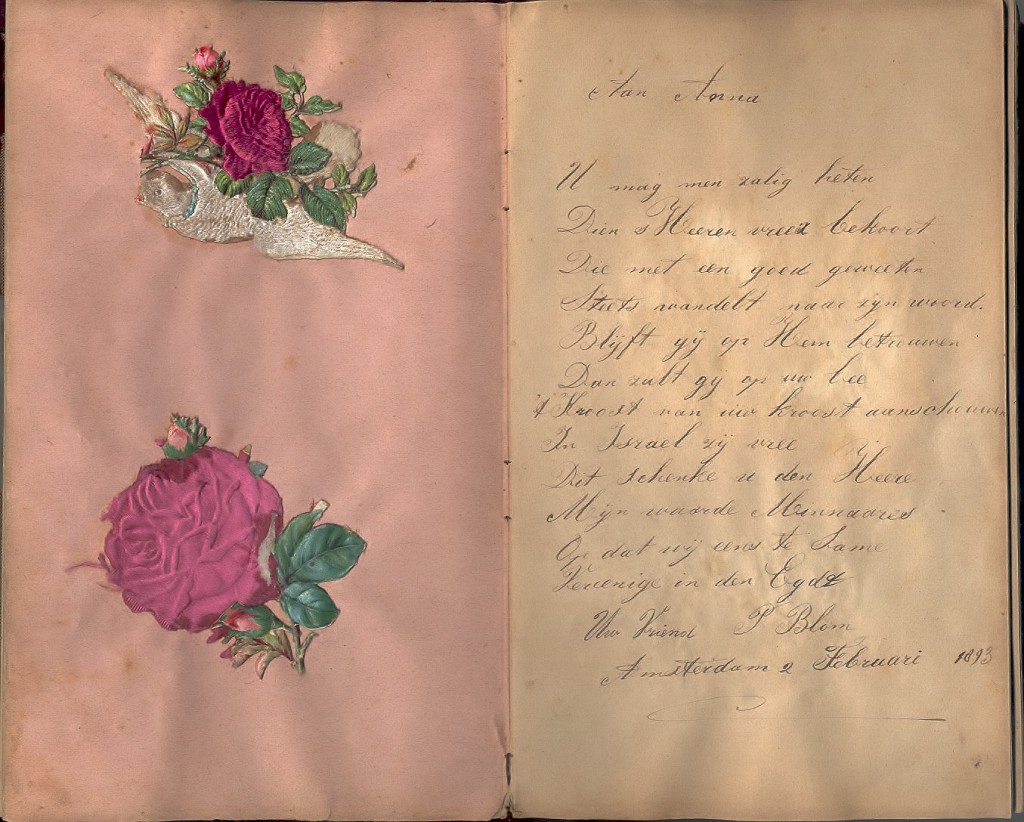 Aan Anna
U mag men zalig heten
Dien s Heeren vrees bekoort
Die met een goed geweeten
Steets wandelt naar zijn woord.
Blijft gij op Hem betrouwen
Dan zult gij op uw bee
't Kroost van uw kroost aanschouwen
In Israel zij vree
Dit schenke u den Heere
Mijn waarde Minnaares
Op dat wij eens te Same
Verenige in den
Uw Vriend P Blom
Amsterdam 2 Februari 1893